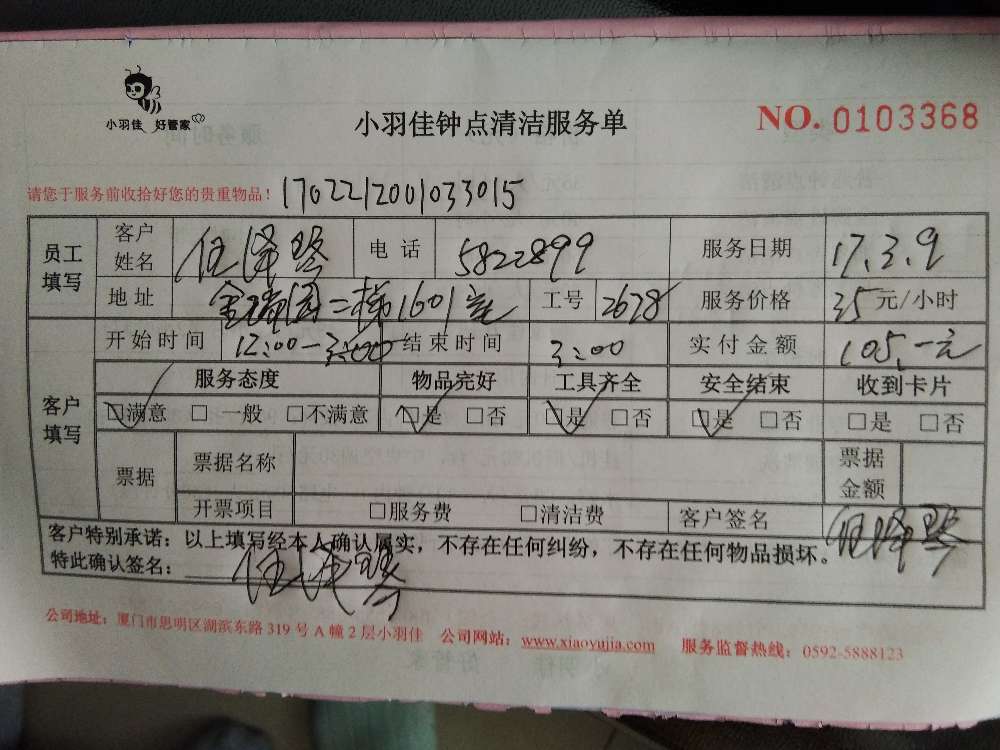 小羽佳 好管家
小羽佳钟点清洁服务单
NO. 0103368
请您于服务前收拾好您的贵重物品! 1702212001033015
员工填写 客户姓名 任泽琴 电话 5822899 服务日期 17.3.9
地址 金瑞园二梯1601室 工号 2678 服务价格 35元/小时
客户填写 开始时间 12:00-3:00 结束时间 3:00 实付金额 105.-元
服务态度 物品完好 工具齐全 安全结束 收到卡片
☑满意 □一般 □不满意 ☑是 □否 ☑是 □否 ☑是 □否 □是 □否
票据 票据名称 票据金额
开票项目 □服务费 □清洁费 客户签名 任泽琴
客户特别承诺:以上填写经本人确认属实,不存在任何纠纷,不存在任何物品损坏。
特此确认签名: 任泽琴
公司地址:厦门市思明区湖滨东路 319 号 A 幢 2 层小羽佳 公司网站:www.xiaoyujia.com 服务监督热线:0592-5888123